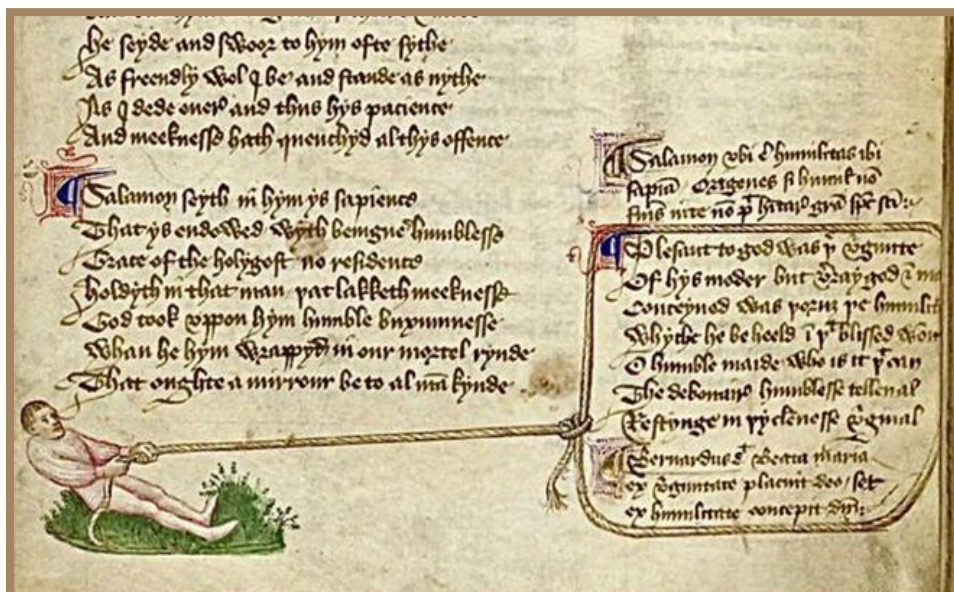 He seyde and swoor to hym ofte sythe
As freendly wol I be and stande as nythe
As I dede euer and thus hys pacience
And meeknesse hath quenchyd al thys offence
Salamon seyth in hym ys sapience
That ys endewed wyth benigne humblesse
Grace of the holygost no residence
holdyth in that man þat lakketh meeknesse
God took vppon hym humble buxumnesse
Whan he hym wrappyd in our mortel rynde
That oughte a mirrour be to al mankynde
Salamon vbi est humilitas ibi
sapia Origenes si humil non
fuis
Plesant to god was þe virginite
Of hys moder but verray god
Conceyued was þe humilit
Whyche he beheeld blissed
O humble maide who is it þat can
The debonaire humblesse tellen al
Restynge in þy clennesse virginal
Bernardus Beata maria
ex virginitate placuit deo set
ex humilitate concepit